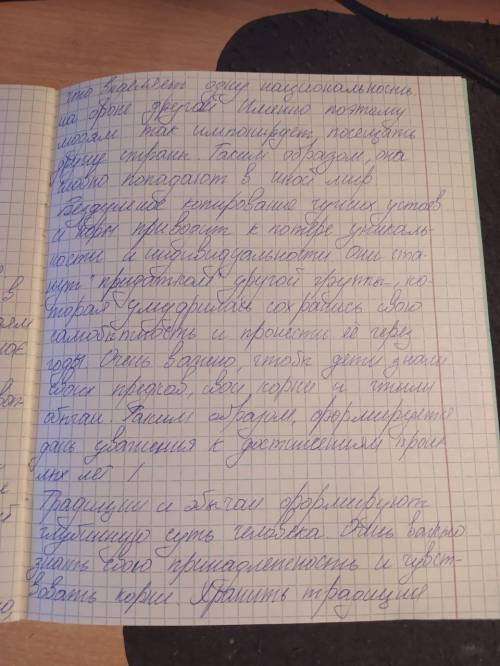 что выделяет одну национальность
на фоне другой Именно поэтому
людям так импонирует посещать
другие страны. Таким образом, они
словно попадают в иной мир
Бездумное копирование чужих устоев
и норм приводит к потере уникаль-
ности и индивидуальности Они ста-
нут "придатком" другой группы, ко-
торая умудрилась сохранить свою
самобытность и пронести её через
годы. Очень важно, чтобы дети знали
своих предков, свои корни и чтили
обычаи. Таким образом, формируется
дань уважения к достижениям прош
лых лет /
Традиции и обычаи формируют
глубинную суть человека. Очень важно
знать свою принадлежность и чувст-
вовать корни. Хранить традиции